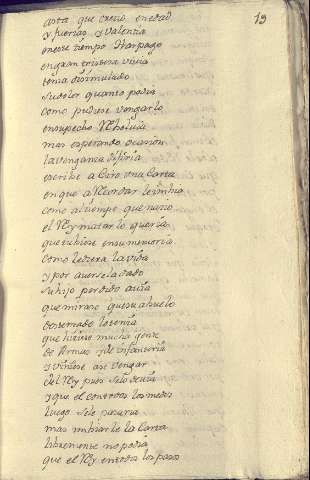 19
asta que crecio en edad
y fuerças y Valentia
en este tiempo Harpago
en gran tristeza viuia
tenia disimulado
su dolor quanto podia
como pudiese vengarlo
en su pecho Reboluia
mas esperando ocasion
la vengança diferia
escribe a Ciro vna Carta
en que a Recordar le imbia
como al tiempo que nacio
el Rey matar lo queria
que tubiese en su memoria
como le diera la vida
y por auersela dado
su hijo perdido auia
que mirase que su abuelo
desterrado lo tenia
que hiciese mucha gente
de Armas y de infanteria
y viniese a se vengar
del Rey pues selo deuia
y que el con todos los medos
luego sele pasaria
mas imbiarle la Carta
libremente no podia
que el Rey en todos los pasos